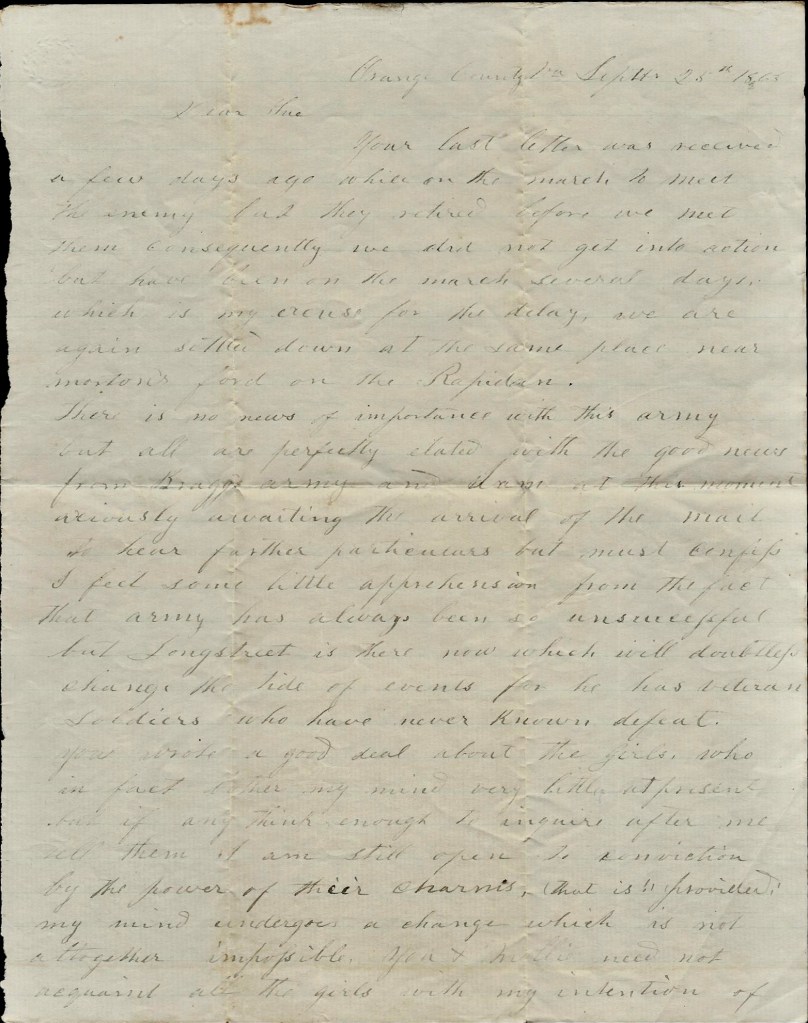 Orange County Va Septbr 25th 1863
Dear Sue
Your last letter was received
a few days ago while on the march to meet
the enemy but they retired before we met
them consequently we did not get into action
but have been on the march several days.
which is my excuse for the delay, we are
again settled down at the same place near
morton's ford on the Rapidan.
There is no news of importance with this army
but all are perfectly elated with the good news
from Braggs army and I am at this moment
anxiously awaiting the arrival of the mail
to hear farther particulars but must confess
I feel some little apprehension from the fact
that army has always been so unsuccessful
but Longstreet is there now which will doubtless
change the tide of events for he has veteran
soldiers who have never known defeat.
You wrote a good deal about the girls. who
in fact bother my mind very little at present
but if any think enough to inquire after me
tell them I am still open to conviction
by the power of their charms, (that is "provided"
my mind undergoes a change which is not
altogether impossible. You & Mollie need not
acquaint all the girls with my intention of